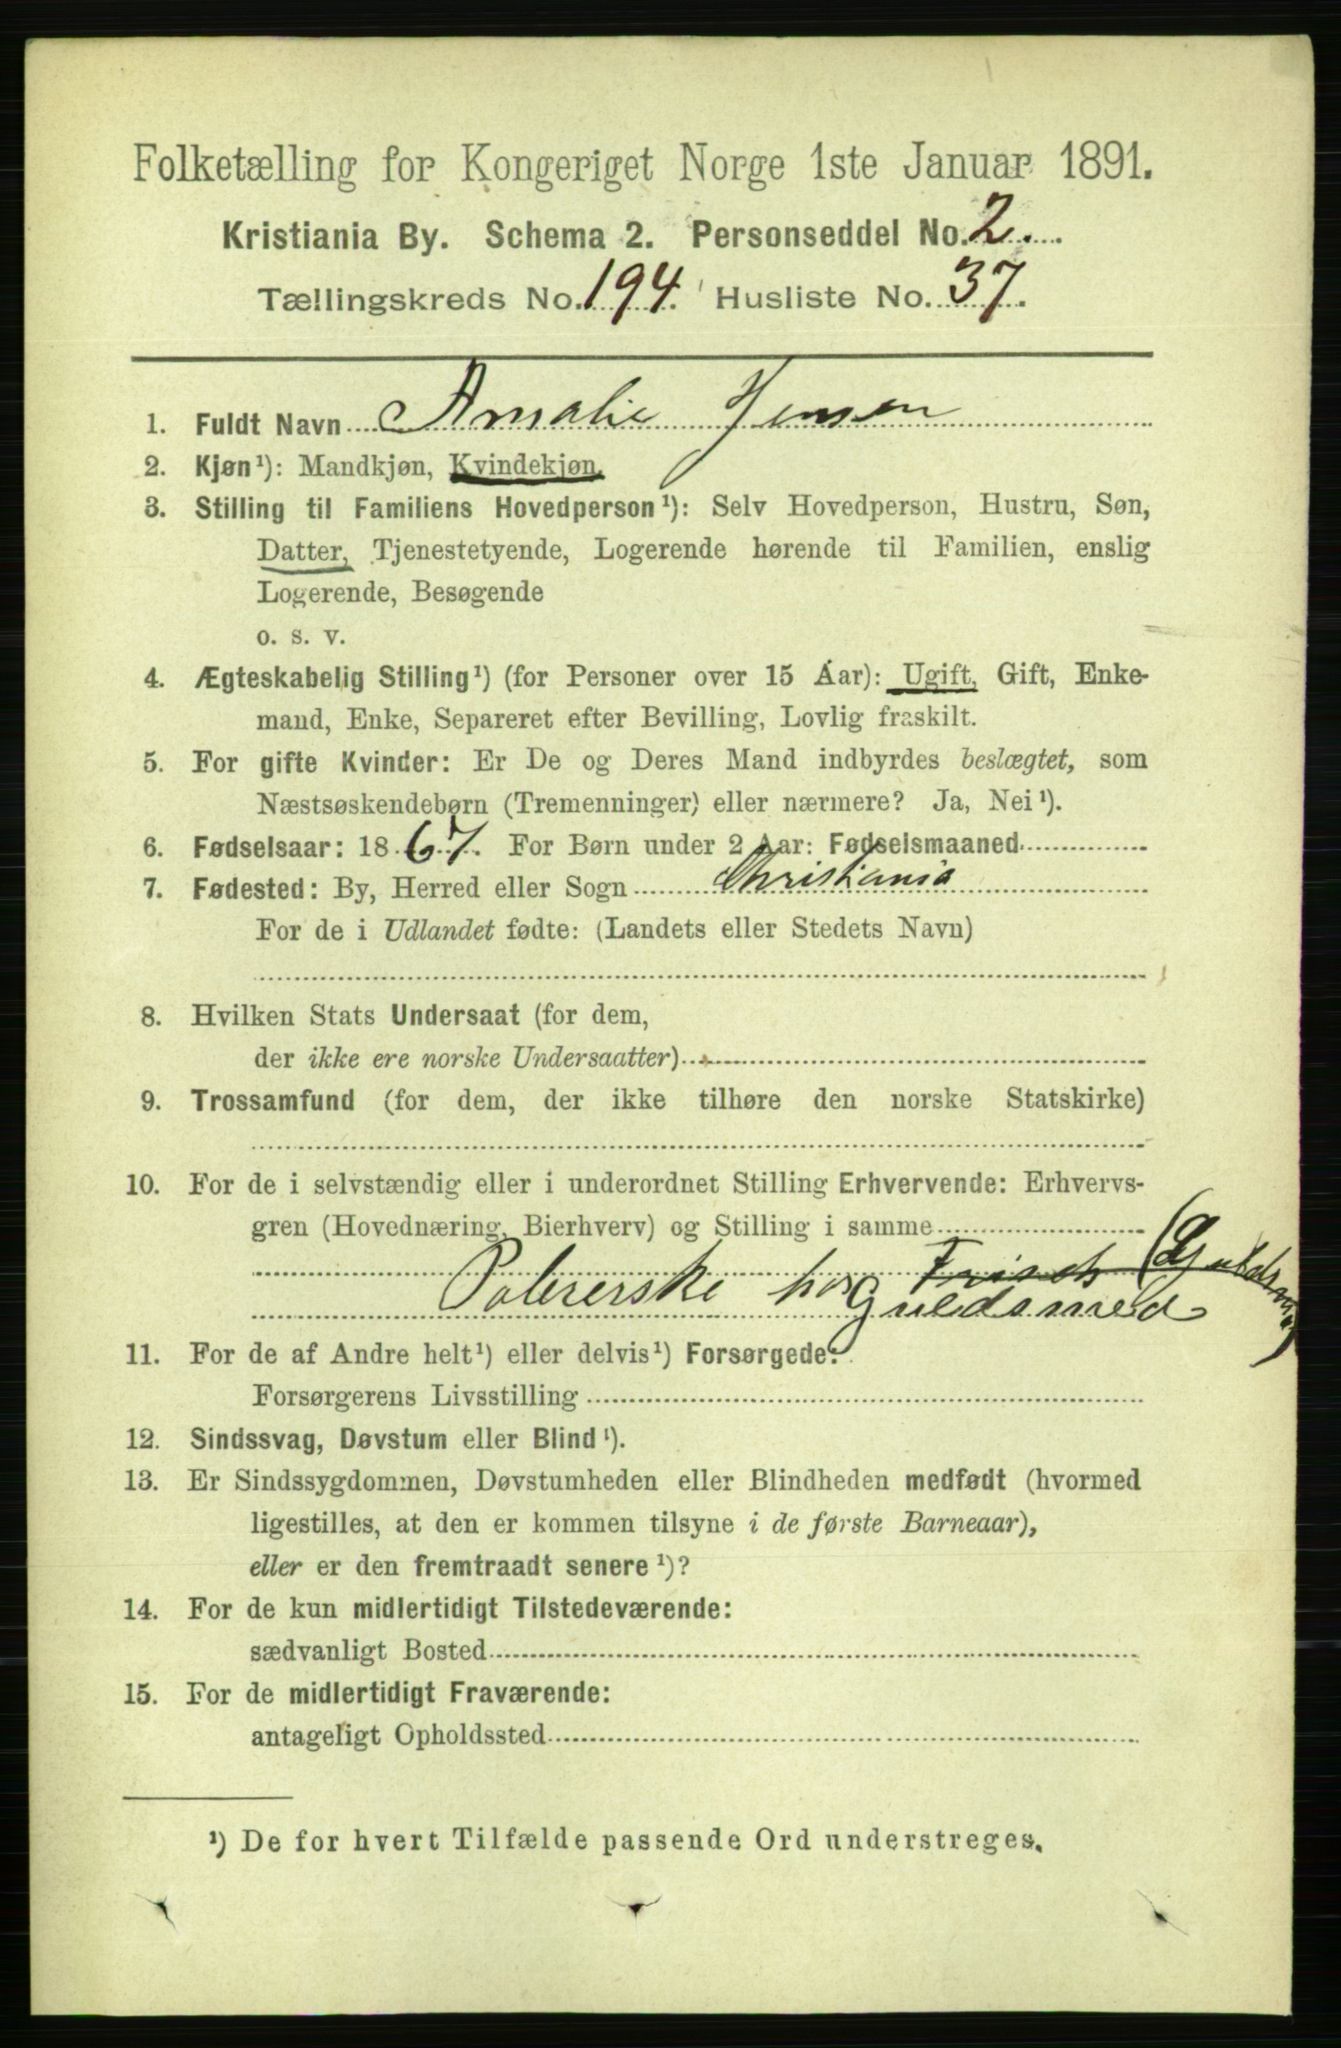 Folketælling for Kongeriget Norge 1ste Januar 1891.
Kristiania By. Schema 2. Personseddel No. 2.
Tællingskreds No. 194. Husliste No. 37.
1. Fuldt Navn Amalie Jensen
2. Kjøn¹): Mandkjøn, Kvindekjøn.
3. Stilling til Familiens Hovedperson¹): Selv Hovedperson, Hustru, Søn,
Datter, Tjenestetyende, Logerende hørende til Familien, enslig
Logerende, Besøgende
o. s. v.
4. Ægteskabelig Stilling¹) (for Personer over 15 Aar): Ugift, Gift, Enke-
mand, Enke, Separeret efter Bevilling, Lovlig fraskilt.
5. For gifte Kvinder: Er De og Deres Mand indbyrdes beslægtet, som
Næstsøskendebørn (Tremenninger) eller nærmere? Ja, Nei¹).
6. Fødselsaar: 1867. For Børn under 2 Aar: Fødselsmaaned
7. Fødested: By, Herred eller Sogn Christiania
For de i Udlandet fødte: (Landets eller Stedets Navn)
8. Hvilken Stats Undersaat (for dem,
der ikke ere norske Undersaatter)
9. Trossamfund (for dem, der ikke tilhøre den norske Statskirke)
10. For de i selvstændig eller i underordnet Stilling Erhvervende: Erhvervs-
gren (Hovednæring, Bierhverv) og Stilling i samme
Polererske hos Frisch (Guldsmed)
Guldsmed
11. For de af Andre helt¹) eller delvis¹) Forsørgede:
Forsørgerens Livsstilling
12. Sindssvag, Døvstum eller Blind¹).
13. Er Sindssygdommen, Døvstumheden eller Blindheden medfødt (hvormed
ligestilles, at den er kommen tilsyne i de første Barneaar),
eller er den fremtraadt senere¹)?
14. For de kun midlertidigt Tilstedeværende:
sædvanligt Bosted
15. For de midlertidigt Fraværende:
antageligt Opholdssted
¹) De for hvert Tilfælde passende Ord understreges.